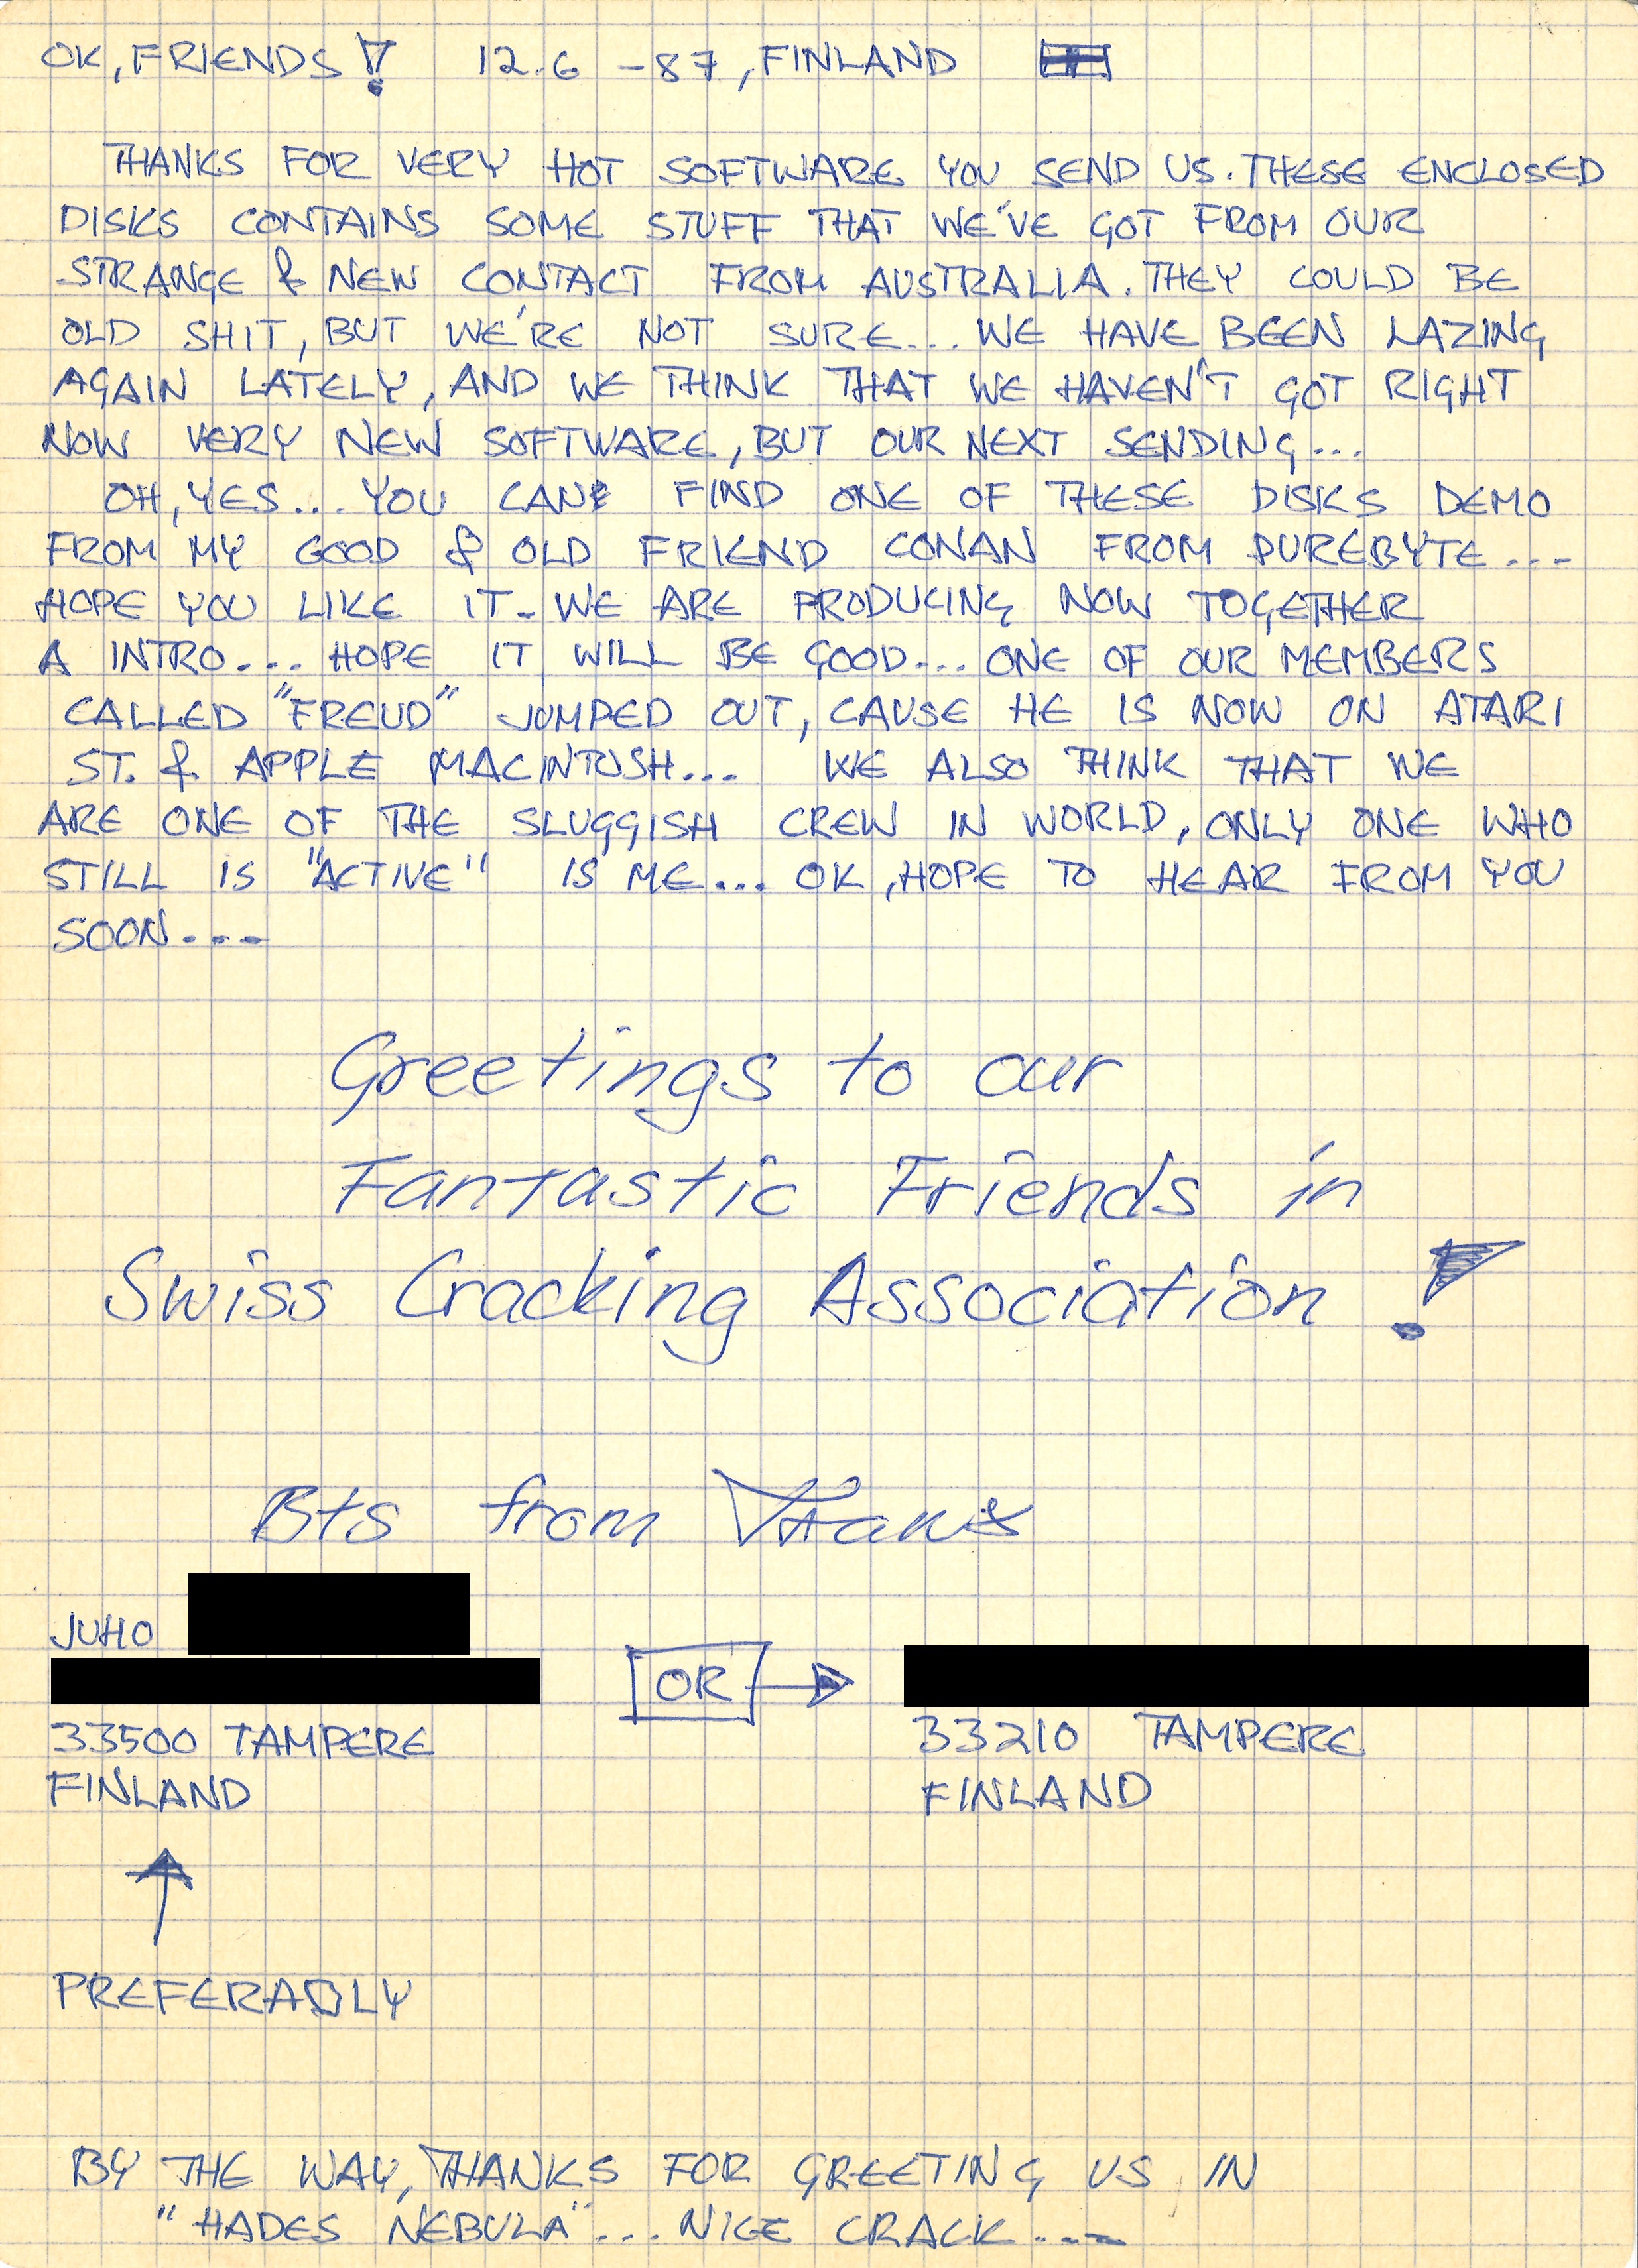 OK, FRIENDS! 12.6 -87, FINLAND
THANKS FOR VERY HOT SOFTWARE YOU SEND US. THESE ENCLOSED
DISKS CONTAINS SOME STUFF THAT WE'VE GOT FROM OUR
STRANGE & NEW CONTACT FROM AUSTRALIA. THEY COULD BE
OLD SHIT, BUT WE'RE NOT SURE... WE HAVE BEEN LAZING
AGAIN LATELY, AND WE THINK THAT WE HAVEN'T GOT RIGHT
NOW VERY NEW SOFTWARE, BUT OUR NEXT SENDING...
OH, YES... YOU CAN FIND ONE OF THESE DISKS DEMO
FROM MY GOOD & OLD FRIEND CONAN FROM PUREBYTE...
HOPE YOU LIKE IT. WE ARE PRODUCING NOW TOGETHER
A INTRO... HOPE IT WILL BE GOOD... ONE OF OUR MEMBERS
CALLED "FREUD" JUMPED OUT, CAUSE HE IS NOW ON ATARI
ST. & APPLE MACINTOSH... WE ALSO THINK THAT WE
ARE ONE OF THE SLUGGISH CREW IN WORLD, ONLY ONE WHO
STILL IS "ACTIVE" IS ME... OK, HOPE TO HEAR FROM YOU
SOON...
Greetings to our
Fantastic Friends in
Swiss Cracking Association!
Bts from
JUHO
OR
33500 TAMPERE
33210 TAMPERE
FINLAND
FINLAND
PREFERABLY
BY THE WAY, THANKS FOR GREETING US IN
"HADES NEBULA"... NICE CRACK...